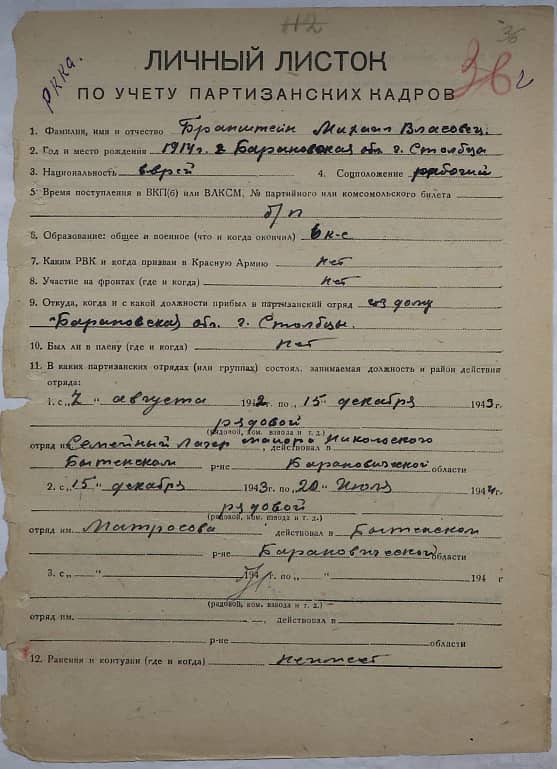 112
36
РККА.
36 г
ЛИЧНЫЙ ЛИСТОК
ПО УЧЕТУ ПАРТИЗАНСКИХ КАДРОВ
1. Фамилия, имя и отчество Бранштейн Михаил Власовец.
2. Год и место рождения 1914г. Барановская обл. г. Столбца
3. Национальность еврей 4. Соцположение рабочий
5. Время поступления в ВКП(б) или ВЛКСМ, № партийного или комсомольского билета
б/п
6. Образование: общее и военное (что и когда окончил) 6 к-с
7. Каким РВК и когда призван в Красную Армию нет
8. Участие на фронтах (где и когда) нет
9. Откуда, когда и с какой должности прибыл в партизанский отряд из дому
Барановская обл. г. Столбцы.
10. Был ли в плену (где и когда) нет
11. В каких партизанских отрядах (или группах) состоял, занимаемая должность и район действия
отряда:
1. с „7 “ августа 1942 г. по „15“ декабря 1943 г.
рядовой
(рядовой, ком. взвода и т. д.)
отряд им. Семейный Лагер майора Никольского, действовал в
Бытенском р-не Барановической области
2. с „15“ декабря 1943 г. по „20“ Июля 1944 г.
рядовой
(рядовой, ком. взвода и т. д.)
отряд им. Матросова действовал в Бытенском
р-не Барановической области
3. с „ “ 194 г. по „ “ 194 г
(рядовой, ком. взвода и т. д.)
отряд им. , действовал в
р-не области
12. Ранения и контузии (где и когда) неимеет